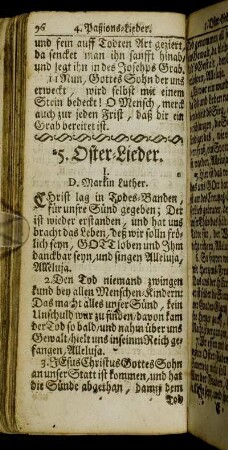 96 4. Passions-Lieder.
und fein auff Todten Art geziert,
da sencket man ihn sanfft hinab/
und legt ihn in des Josephs Grab.
11 Nun, Gottes Sohn der uns
erweckt, wird selbst mit einem
Stein bedeckt! O Mensch, merck
auch zur jeden Frist, daß dir ein
Grab bereitet ist.
5. Oster-Lieder.
1.
D. Martin Luther.
Christ lag in Todes-Banden,
für unsre Sünd gegeben; Der
ist wieder erstanden, und hat uns
bracht das Leben, deß wir solln frö-
lich seyn, GOTT loben und Ihm
danckbar seyn, und singen Alleluja,
Alleluja.
2. Den Tod niemand zwingen
kund bey allen Menschen-Kindern:
Das macht alles unser Sünd, kein
Unschuld war zu finden/davon kam
der Tod so bald/und nahm über uns
Gewalt/hielt uns in seinm Reich ge-
fangen, Alleluja.
3. JEsus Christus Gottes Sohn
an unser Statt ist kommen, und hat
die Sünde abgethan, damit dem
Tod